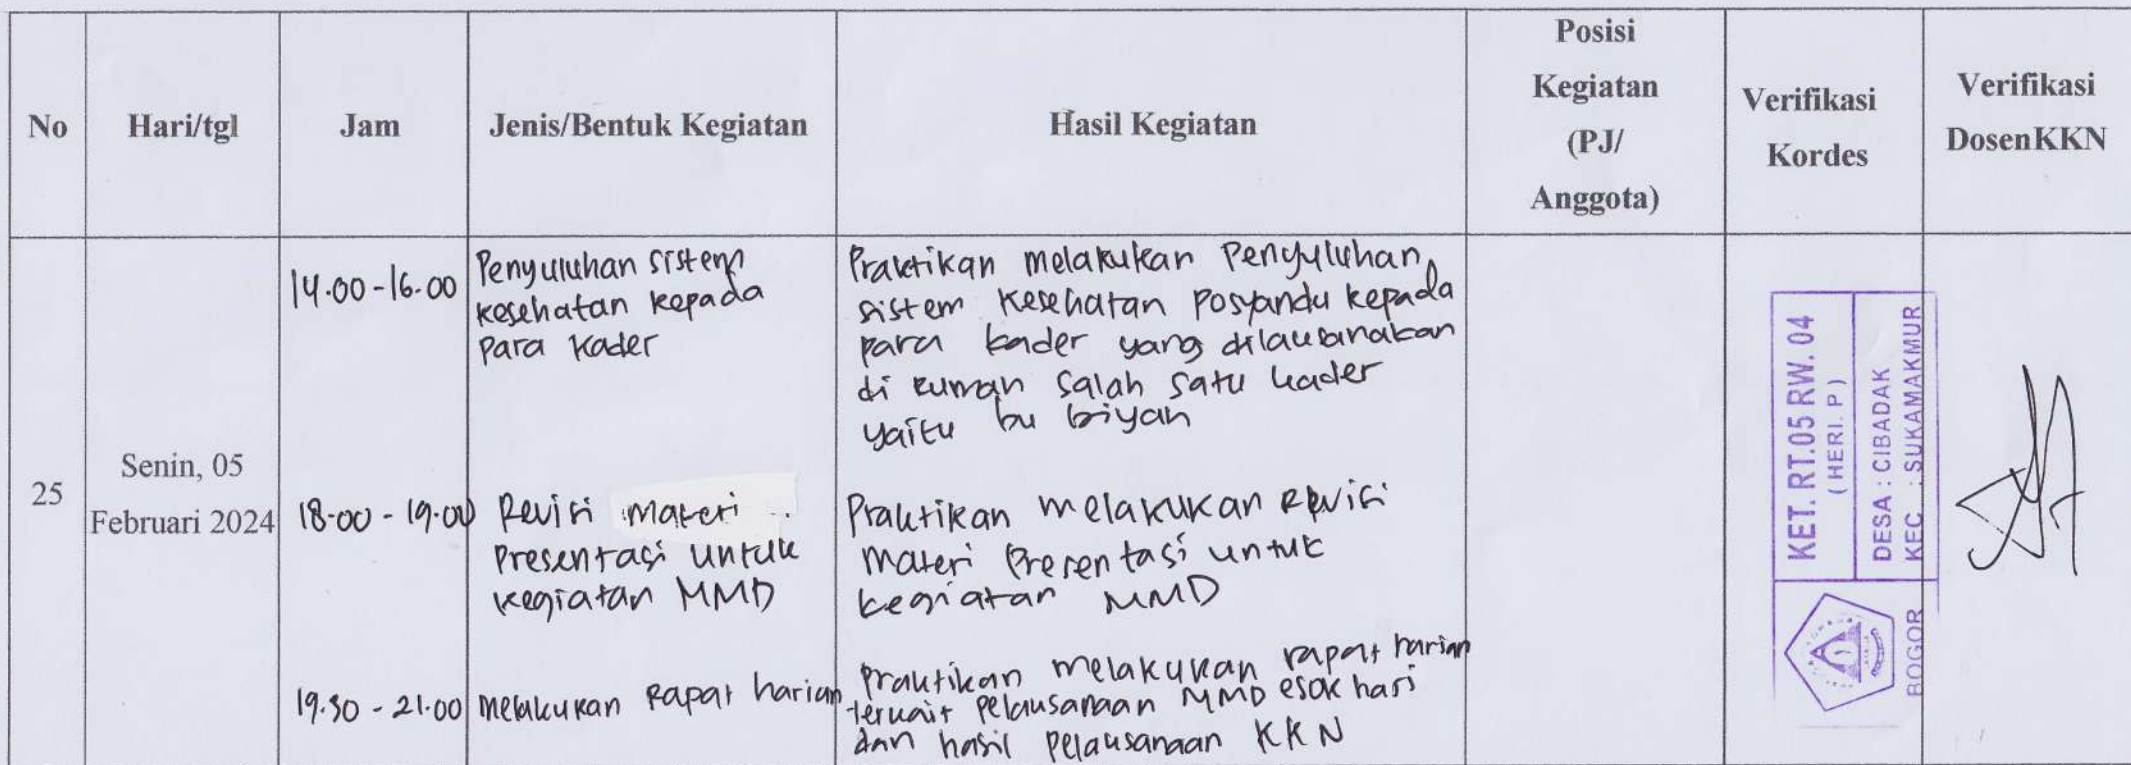 No
Hari/tgl
Jam
Jenis/Bentuk Kegiatan
Hasil Kegiatan
Posisi
Kegiatan
(PJ/
Anggota)
Verifikasi
Kordes
Verifikasi
DosenKKN
25
Senin, 05
Februari 2024
14.00-16.00
Penyuluhan sistem
kesehatan kepada
para kader
Praktikan melakukan Penyuluhan
sistem Kesehatan posyandu kepada
para kader yang dilaksanakan
di rumah salah satu kader
yaitu bu biyan
18.00 - 19.00
Revisi materi
Presentasi untuk
kegiatan MMD
Praktikan melakukan Revisi
materi Presentasi untuk
kegiatan MMD
19.30 - 21.00
melakukan Rapat harian
Praktikan melakukan rapat harian
terkait pelaksanaan MMD esok hari
dan hasil pelaksanaan KKN
KET. RT.05 RW. 04
( HERI. P )
DESA : CIBADAK
KEC : SUKAMAKMUR
BOGOR